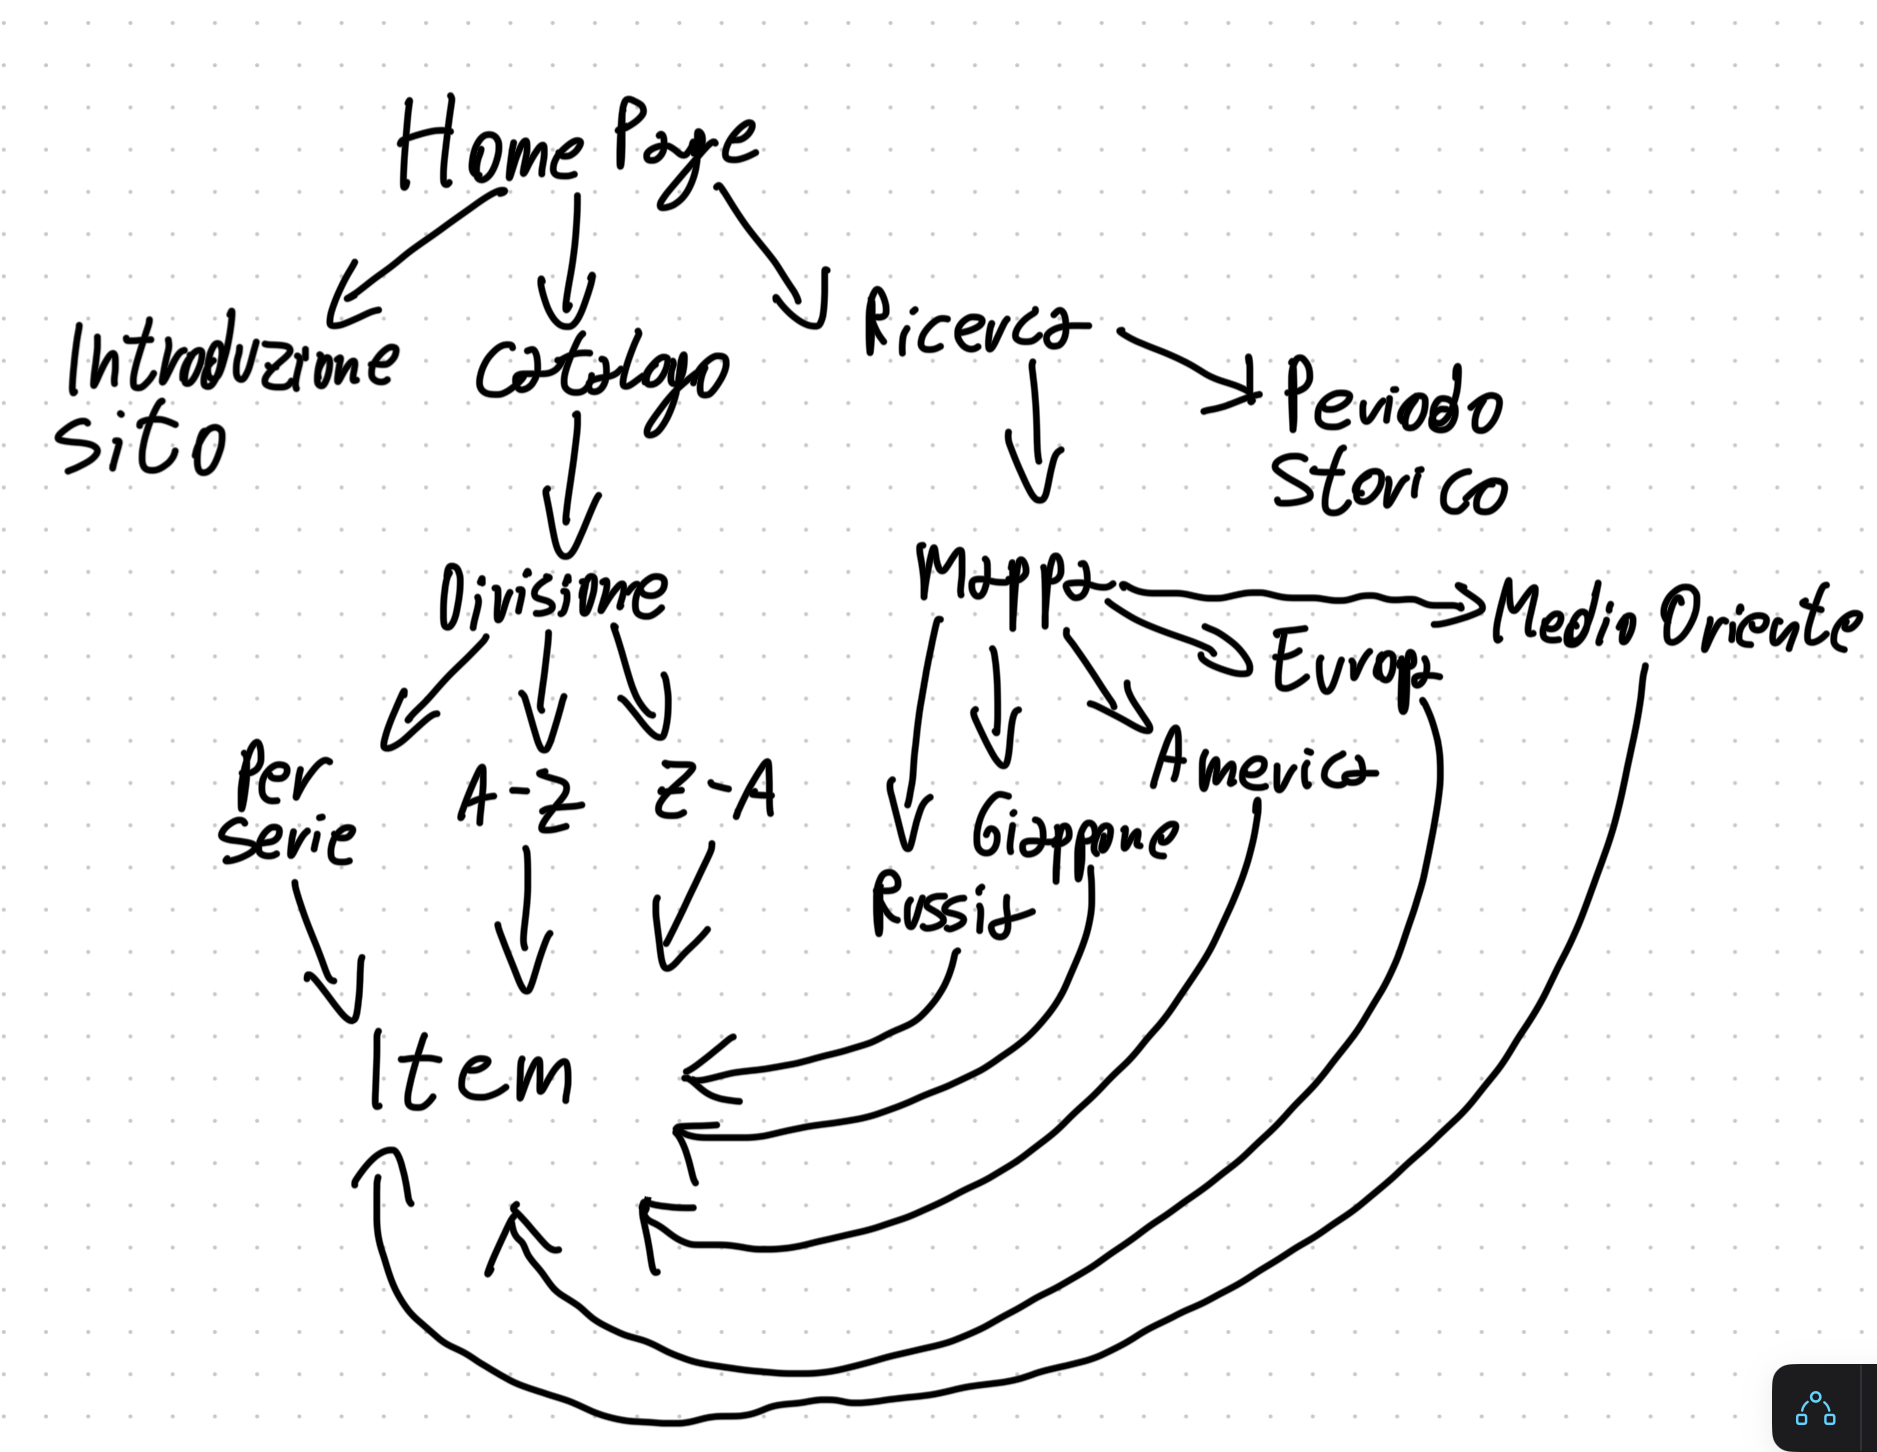 Home Page
Introduzione
sito
Catalogo
Ricerca
Periodo
Storico
Divisione
Mappa
Medio Oriente
Europa
Per
serie
A-Z
Z-A
America
Giappone
Russia
Item